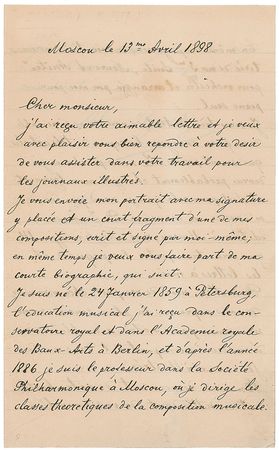 Moscou le 13me Avril 1898.
Cher monsieur,
j'ai reçu votre aimable lettre et je veux
avec plaisir vous bien repondre a votre desir
de vous assister dans votre travail pour
les journaux illustrés.
Je vous envoie mon portrait avec ma signature
y placée et un court fragment d'une de mes
compositions, ecrit et signé par moi-même;
en même temps je veux vous faire part de ma
courte biographie, qui suit:
Je suis né le 24 Janvier 1859 à Petersburg,
l'education musical j'ai reçu dans le con-
servatoire royal et dans l'Academie royale
des Baux-Arts à Berlin, et d'après l'année
1886 je suis le professeur dans la Société
Philharmonique à Moscou, où je dirige les
classes theoretiques de la composition musicale.